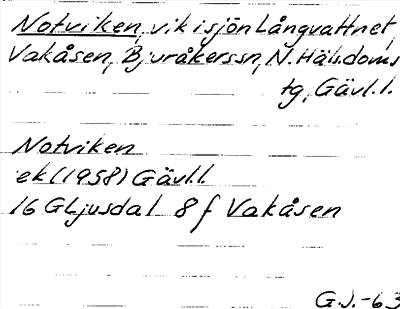 Notviken, vik i sjön Långvattnet,
Vakåsen, Bjuråkerssn, N. Hälsdoms
tg, Gävl.l.
Notviken
ek (1958) Gävl.l.
16 G Ljusdal 8 f Vakåsen
G.J.-63